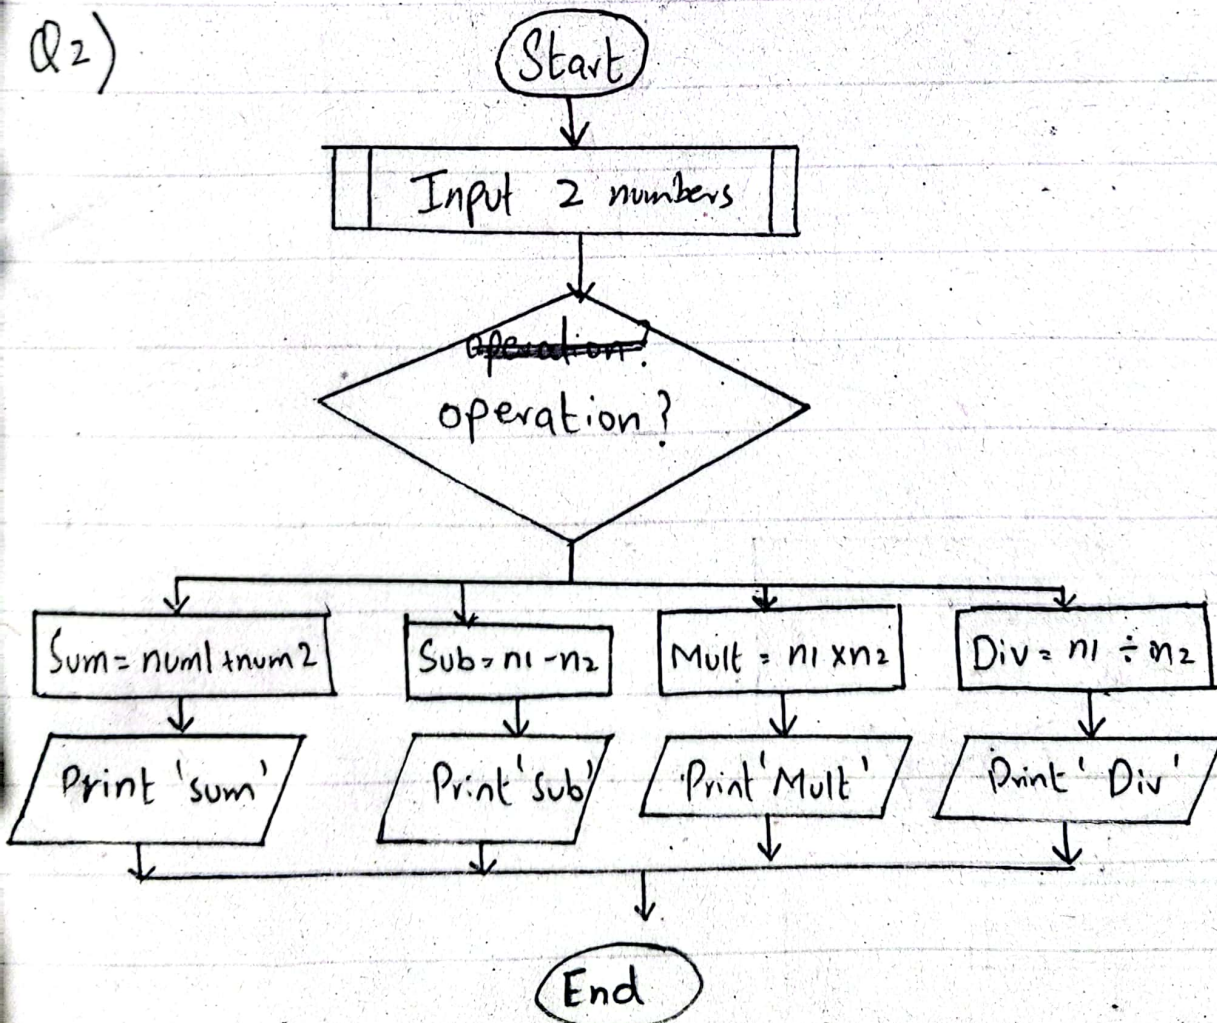 Q2)
Start
Input 2 numbers
operation?
operation?
Sum = num1 + num2
Sub = n1 - n2
Mult = n1 x n2
Div = n1 ÷ n2
Print 'sum'
Print 'Sub'
Print 'Mult'
Print 'Div'
End